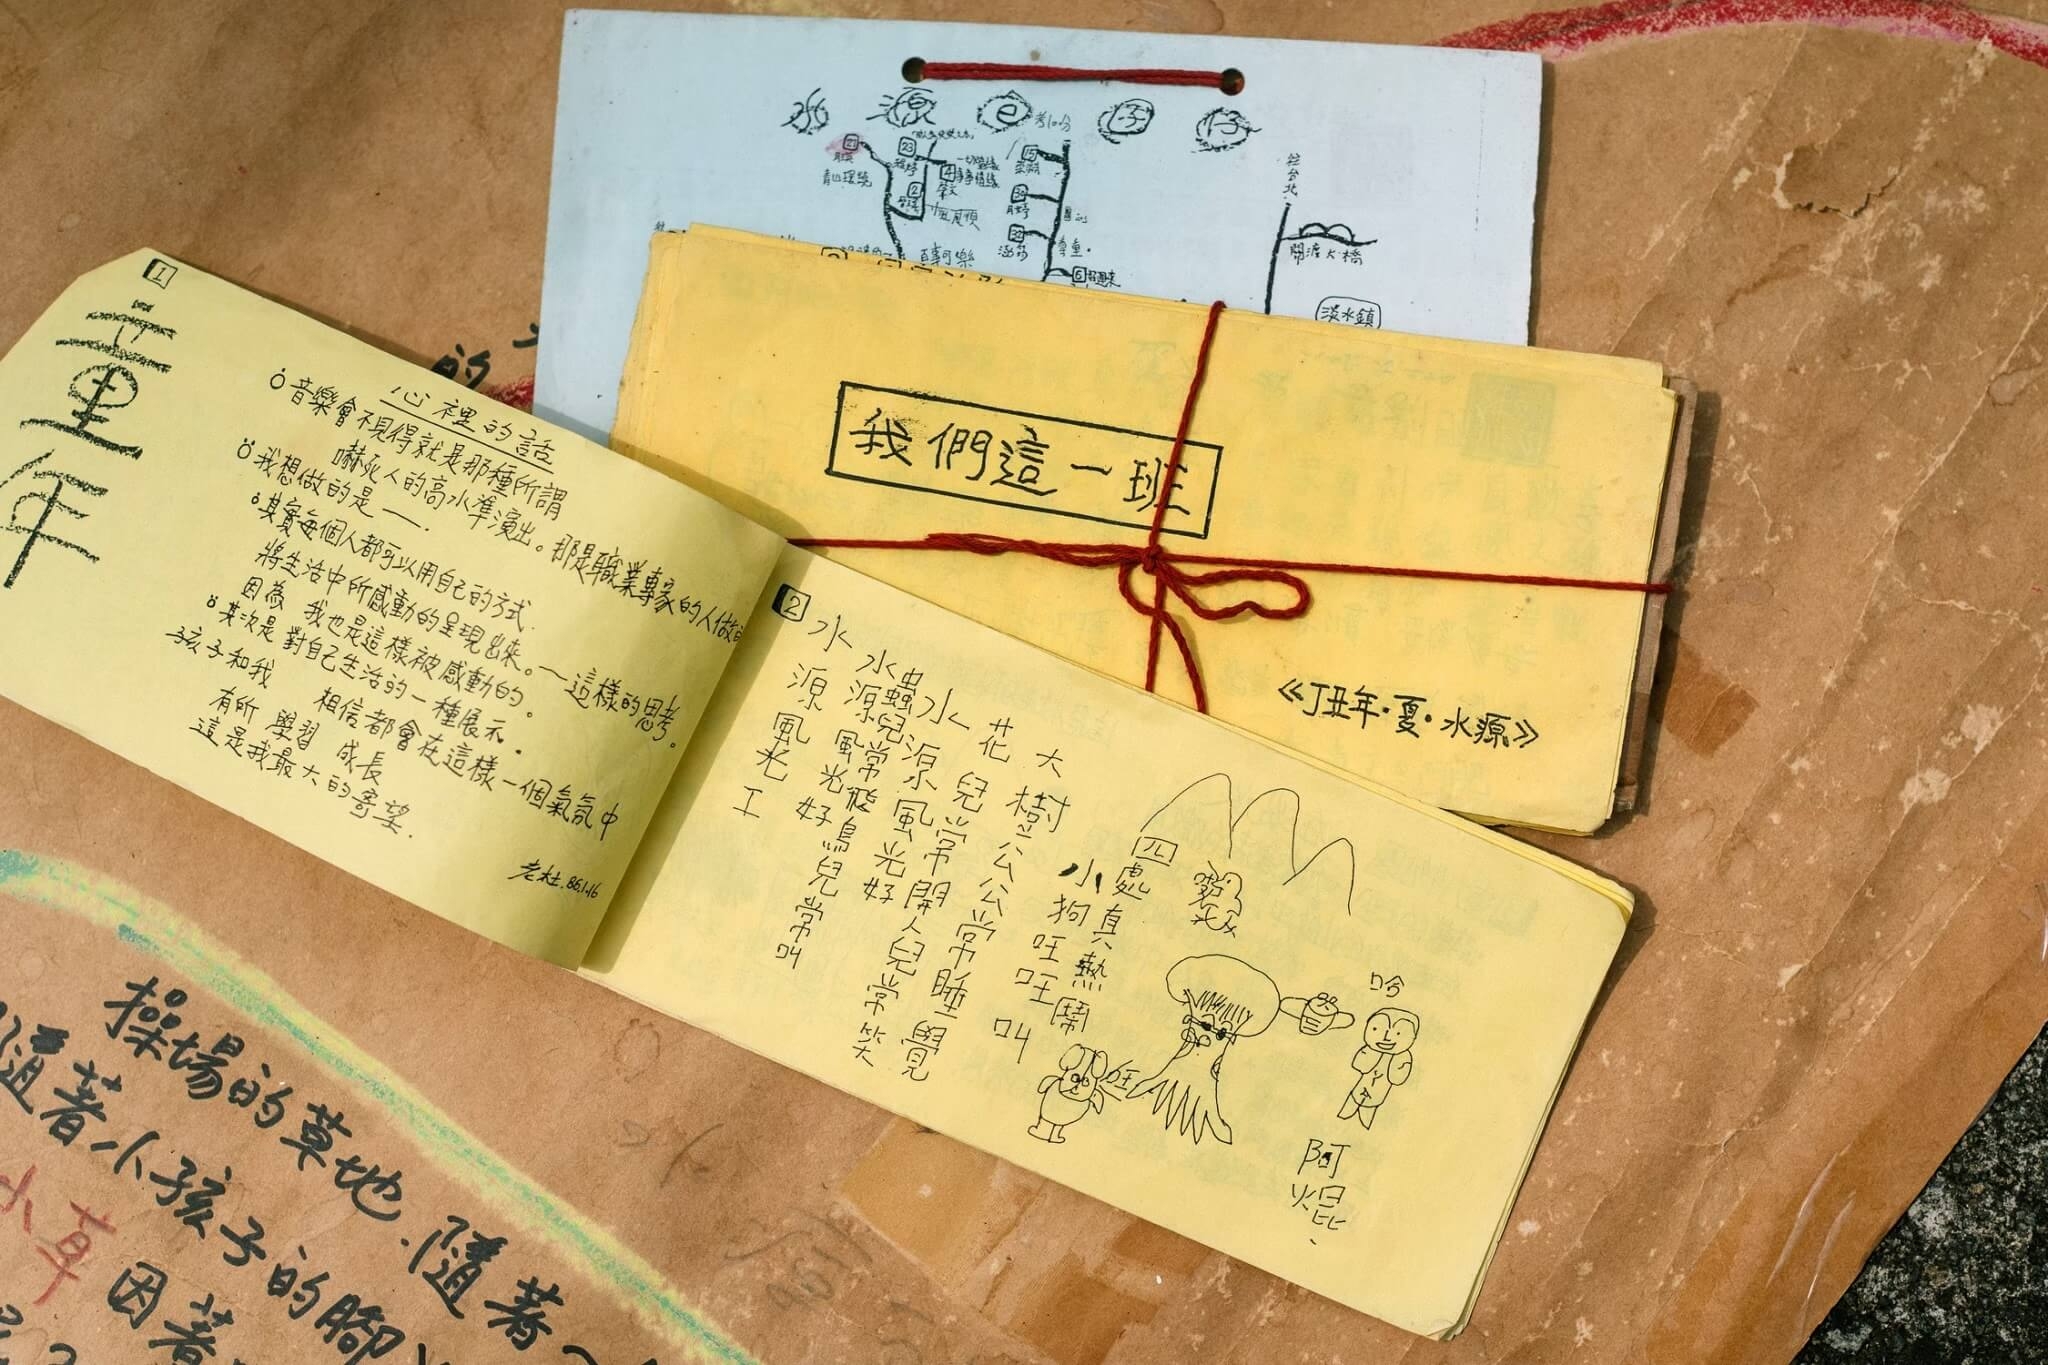 水源ㄟ囝仔
考10分
21
23
15
4
2
30
32
6
往台北
關渡大橋
淡水鎮
百事可樂
我們這一班
《丁丑年·夏·水源》
1
童年
心裡的話
音樂會不見得就是那種所謂
嚇死人的高水準演出。那是職業專家的人做
我想做的是——.
其實每個人都可以用自己的方式
將生活中所感動的呈現出來。—這樣的思考。
因為 我也是這樣被感動的。
其次是 對自己生活的一種展示.
孩子和我 相信都會在這樣一個氣氛中
有所 學習 成長
這是我最大的寄望.
老杜.86.1.16
2
水源風光
水源風光好 鳥兒常叫
蟲兒常
水源風光好 人兒常笑
花兒常開
大樹公公常睡覺
小狗旺旺叫
四處真熱鬧
旺
哈
阿焜
的
操場的草地.隨著
隨著小孩子的腳
小草 因著